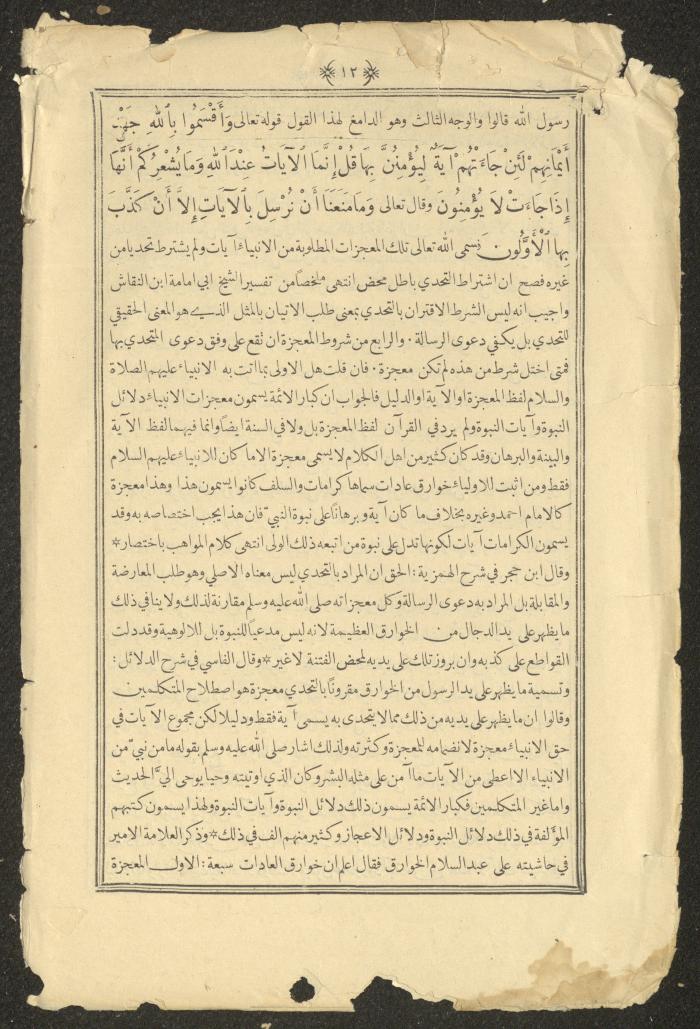 ١٢
رسول الله قالوا والوجه الثالث وهو الدامغ لهذا القول قوله تعالى وَأَقْسَمُوا بِٱللهِ جَهْدَ
أَيْمَانِهِمْ لَئِنْ جَاءَتْهُمْ آيَةٌ لَيُؤْمِنُنَّ بِهَا قُلْ إِنَّمَا ٱلْآيَاتُ عِنْدَ ٱللهِ وَمَا يُشْعِرُكُمْ أَنَّهَا
إِذَا جَاءَتْ لَا يُؤْمِنُونَ وقال تعالى وَمَا مَنَعَنَا أَنْ نُرْسِلَ بِٱلْآيَاتِ إِلَّا أَنْ كَذَّبَ
بِهَا ٱلْأَوَّلُونَ فسمى الله تعالى تلك المعجزات المطلوبة من الانبياء آيات ولم يشترط تحديا من
غيره فصح ان اشتراط التحدي باطل محض انتهى ملخصاً من تفسير الشيخ ابي امامة ابن النقاش
واجيب انه ليس الشرط الاقتران بالتحدي بمعنى طلب الاتيان بالمثل الذي هو المعنى الحقيقي
للتحدي بل يكفي دعوى الرسالة ٠ والرابع من شروط المعجزة ان تقع على وفق دعوى المتحدي بها
فمتى اختل شرط من هذه لم تكن معجزة ٠ فان قلت هل الاولى بما اتت به الانبياء عليهم الصلاة
والسلام لفظ المعجزة او الآية او الدليل فالجواب ان كبار الائمة يسمون معجزات الانبياء دلائل
النبوة وآيات النبوة ولم يرد في القرآن لفظ المعجزة بل ولا في السنة ايضاً وانما فيهما لفظ الآية
والبينة والبرهان وقد كان كثير من اهل الكلام لا يسمى معجزة الا ما كان للانبياء عليهم السلام
فقط ومن اثبت للاولياء خوارق عادات سماها كرامات والسلف كانوا يسمون هذا وهذا معجزة
كالامام احمد وغيره بخلاف ما كان آية وبرهانًا على نبوة النبيّ فان هذا يجب اختصاصه به وقد
يسمون الكرامات آيات لكونها تدل على نبوة من اتبعه ذلك الولى انتهى كلام المواهب باختصار*
وقال ابن حجر في شرح الهمزية : الحق ان المراد بالتحدي ليس معناه الاصلي وهو طلب المعارضة
والمقابلة بل المراد به دعوى الرسالة وكل معجزاته صلى الله عليه وسلم مقارنة لذلك ولا ينافي ذلك
ما يظهر على يد الدجال من الخوارق العظيمة لانه ليس مدعياً للنبوة بل للالوهية وقد دلت
القواطع على كذبه وان بروز تلك على يديه لمحض الفتنة لا غير * وقال الفاسي في شرح الدلائل :
وتسمية ما يظهر على يد الرسول من الخوارق مقرونًا بالتحدي معجزة هو اصطلاح المتكلمين
وقالوا ان ما يظهر على يديه من ذلك مما لا يتحدى به يسمى آية فقط ودليلا لكن مجموع الآيات في
حق الانبياء معجزة لانضمامه للمعجزة وكثرته ولذلك اشار صلى الله عليه وسلم بقوله ما من نبيّ من
الانبياء الا اعطى من الآيات ما آمن على مثله البشر وكان الذي اوتيته وحيا يوحى اليّ الحديث
واما غير المتكلمين فكبار الائمة يسمون ذلك دلائل النبوة وآيات النبوة ولهذا يسمون كتبهم
المؤلفة في ذلك دلائل النبوة ودلائل الاعجاز وكثير منهم الف في ذلك * وذكر العلامة الامير
في حاشيته على عبد السلام الخوارق فقال اعلم ان خوارق العادات سبعة : الاول المعجزة